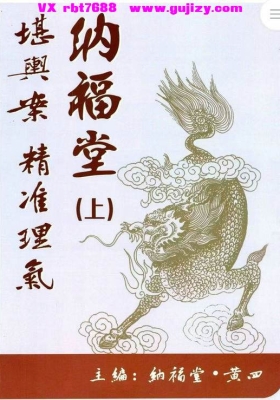 VX rbt7688 www.gujizy.com
纳福堂
(上)
堪舆案 精准理氣
主编：納福堂·黄四